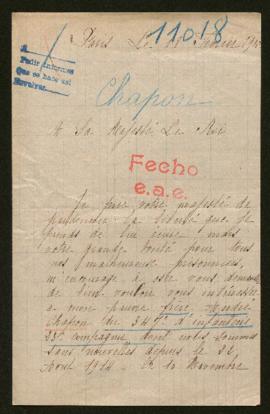 11018
Paris Le 18 Janvier 191
A
Pedir informes
Que se hace así
Devolver
Chapon
A Sa Majesté Le Roi
Fecho
e.a.e.
Je prie votre majesté de
pardonner la liberté que je
prends de lui écrire mais
votre grande bonté pour tous
nos malheureux prisonniers
m'encourage à oser vous demander
de bien vouloir vous intéresser
à mon pauvre frère André
Chapon du 347e d'infanterie
33e compagnie dont nous sommes
sans nouvelles depuis le 26
Août 1914. Le 10 Novembre